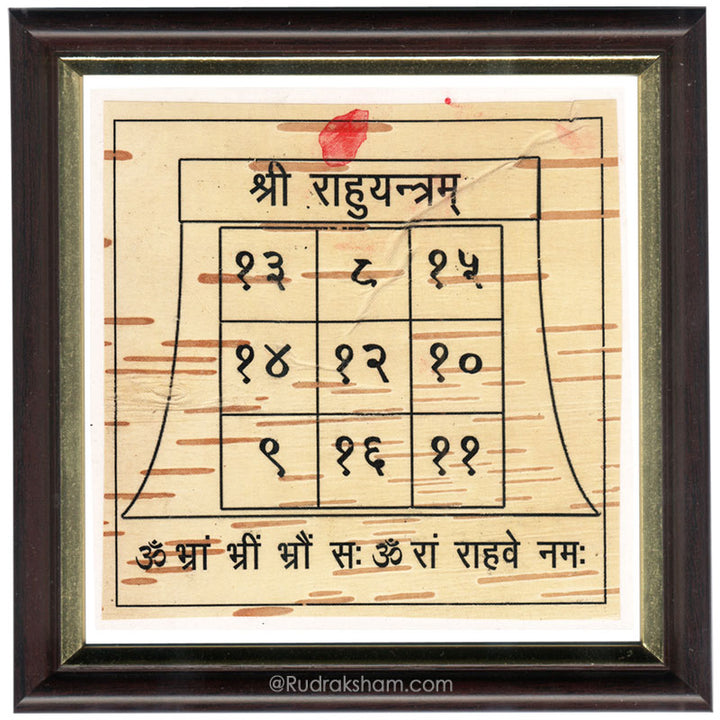 श्री राहुयन्त्रम्
१३ ८ १५
१४ १२ १०
९ १६ ११
ॐ भ्रां भ्रीं भ्रौं सः ॐ रां राहवे नमः
@Rudraksham.com